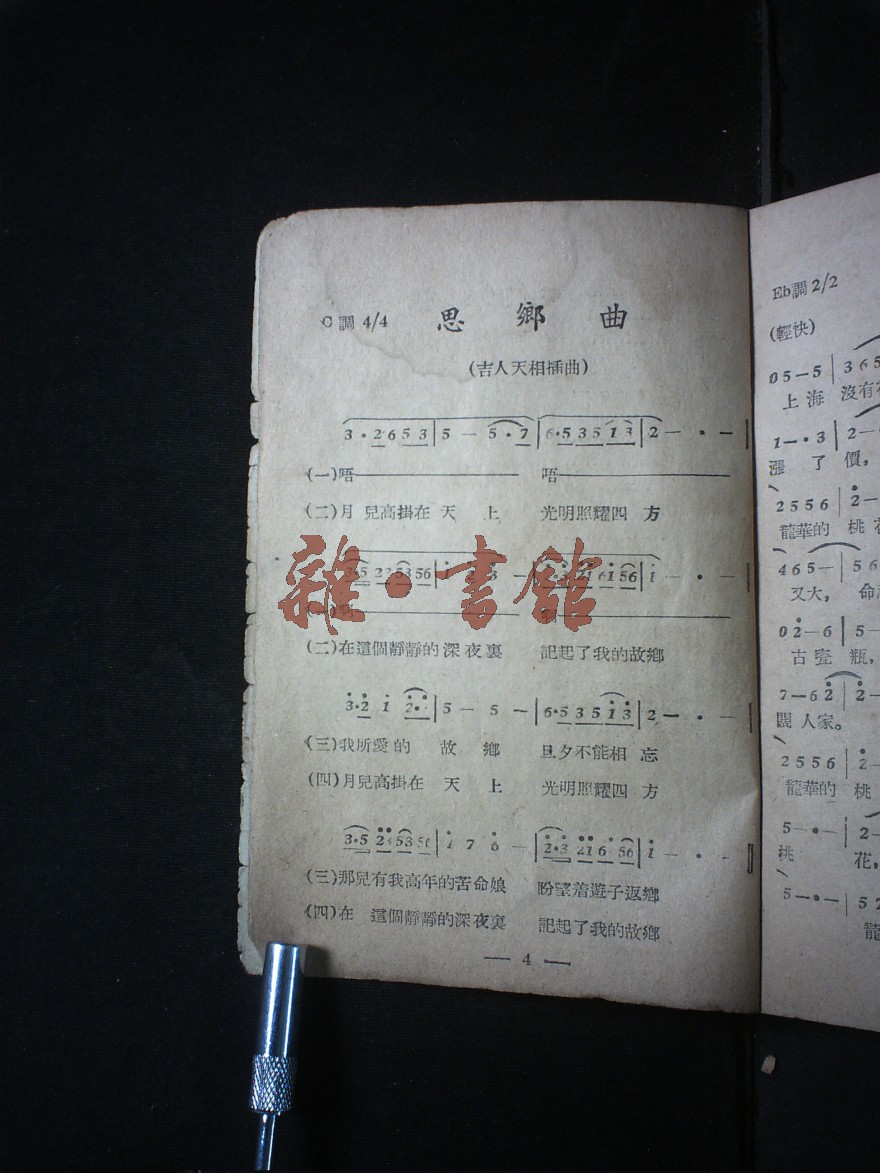 C調 4/4 思鄉曲
(吉人天相插曲)
3·2 6 5 3 | 5 — 5·7 | 6·5 3 5 1̇ 3̇ | 2 — · —
(一)唔 唔
(二)月兒高掛在天上 光明照耀四方
雜·書館
(二)在這個靜靜的深夜裏 記起了我的故鄉
3̇·2̇ 1̇ 2̇· | 5 — 5 — | 6·5 3 5 1̇ 3̇ | 2 — · —
(三)我所愛的故鄉 旦夕不能相忘
(四)月兒高掛在天上 光明照耀四方
| 1̇ 7 6 — | 1̇ — · —
(三)那兒有我高年的苦命娘 盼望着遊子返鄉
(四)在這個靜靜的深夜裏 記起了我的故鄉
— 4 —
Eb調 2/2
(輕快)
0 5 — 5 | 3 6 5
上海沒有
1 — · 3 | 2 —
漲了價,
2 5 5 6 | 2̇ —
龍華的桃花
4 6 5 — | 5 6
又大,命
0 2̇ — 6 | 5 —
古瓷瓶,
7 — 6 2̇ | 2̇ —
闊人家。
2 5 5 6 | 2̇ —
龍華的桃
5 — · — | 2 —
桃花,
5 — · — | 5 2
龍